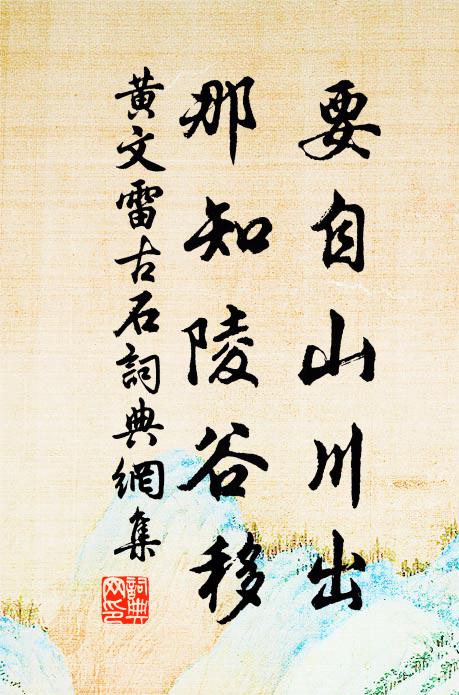 要自山川出
那知陵谷移
黄文雷古石詞典網集
詞典